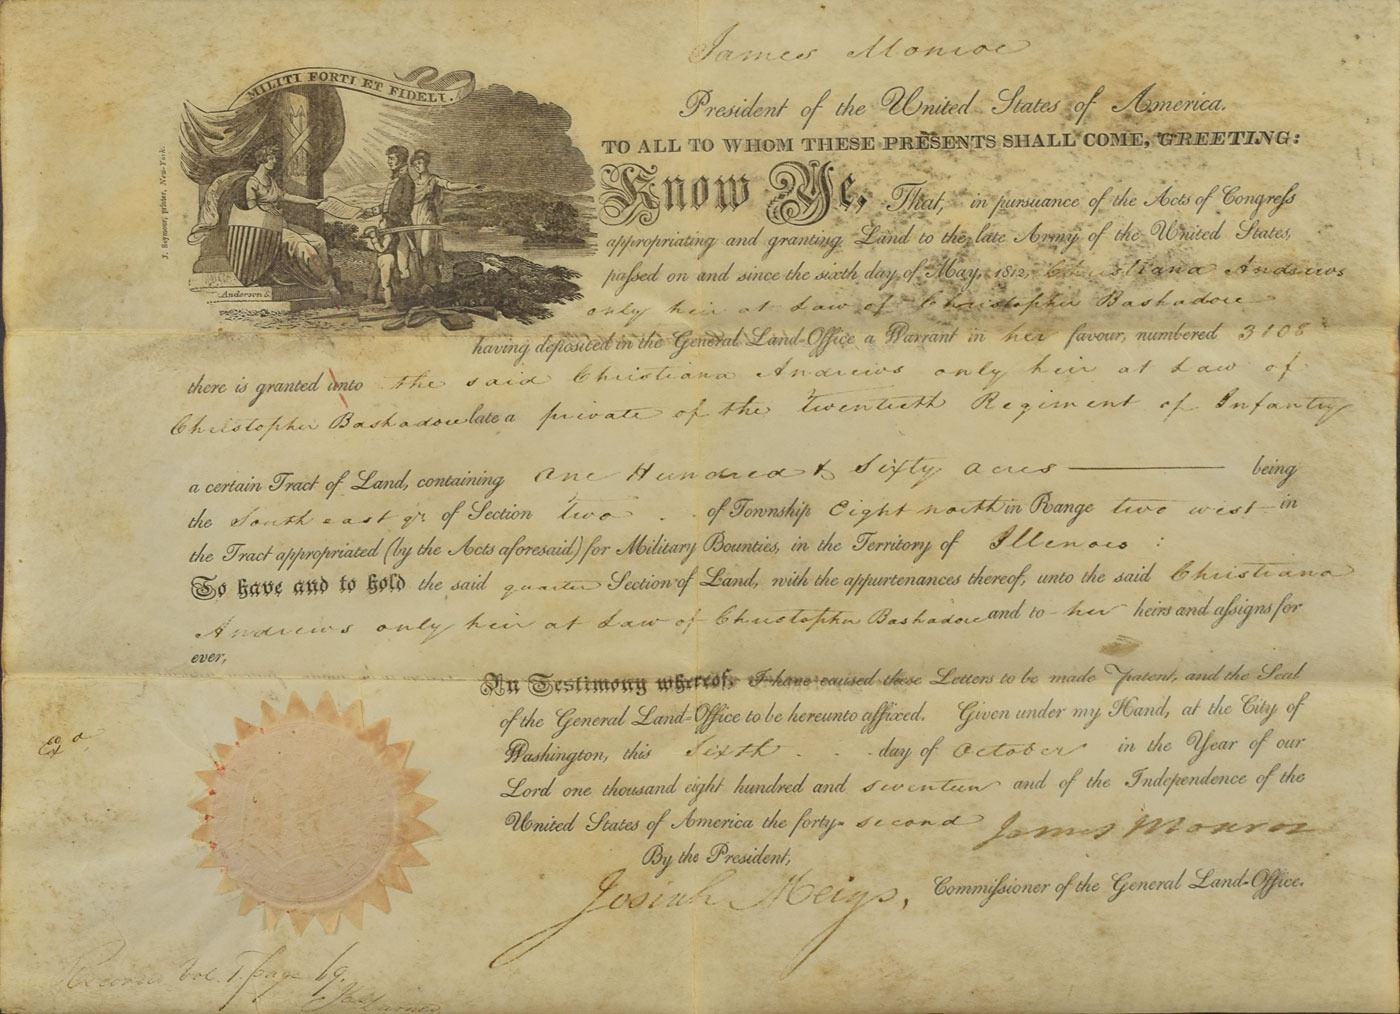 James Monroe
President of the United States of America.
MILITI FORTI ET FIDELI.
TO ALL TO WHOM THESE PRESENTS SHALL COME, GREETING:
Know Ye, That, in pursuance of the Acts of Congress
appropriating and granting Land to the late Army of the United States,
passed on and since the sixth day of May, 1812, Christiana Andrews
only heir at Law of Christopher Bashadore
having deposited in the General Land-Office a Warrant in her favour, numbered 3108
there is granted unto the said Christiana Andrews only heir at Law of
Christopher Bashadore late a private of the twentieth Regiment of Infantry
a certain Tract of Land, containing One Hundred & Sixty acres being
the South east qr. of Section two of Township Eight north in Range two west in
the Tract appropriated (by the Acts aforesaid) for Military Bounties, in the Territory of Illenois :
To have and to hold the said quarter Section of Land, with the appurtenances thereof, unto the said Christiana
Andrews only heir at Law of Christopher Bashadore and to her heirs and assigns for
ever,
In Testimony whereof, I have caused these Letters to be made Patent, and the Seal
of the General Land-Office to be hereunto affixed. Given under my Hand, at the City of
Washington, this Sixth day of October in the Year of our
Lord one thousand eight hundred and seventeen and of the Independence of the
United States of America the forty-second James Monroe
By the President,
Josiah Meigs, Commissioner of the General Land-Office.
J. Seymour, printer, New-York.
Anderson S.
Vol. 1. page 69.